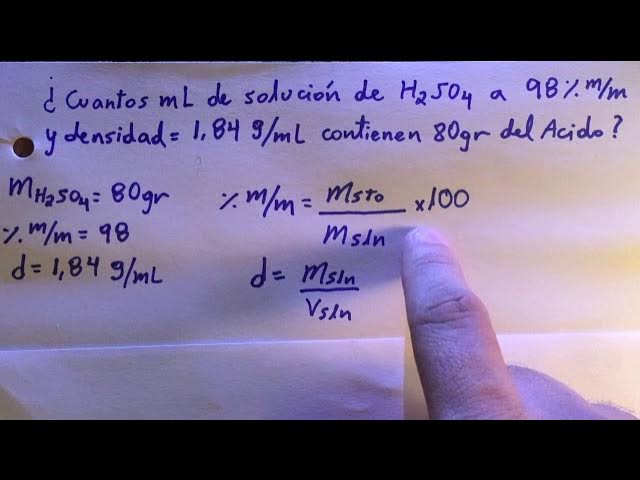 ¿Cuantos mL de solución de H₂SO₄ a 98% m/m
y densidad = 1,84 g/mL contienen 80gr del Acido?
mH₂SO₄ = 80gr
% m/m = 98
d = 1,84 g/mL
% m/m = msto / msln × 100
d = msln / Vsln